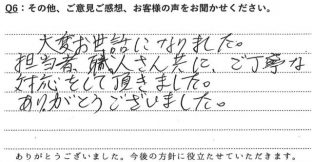 Q6：その他、ご意見ご感想、お客様の声をお聞かせください。
大変お世話になりました。
担当者、職人さん共に、ご丁寧な
対応をして頂きました。
ありがとうございました。
ありがとうございました。今後の方針に役立たせていただきます。